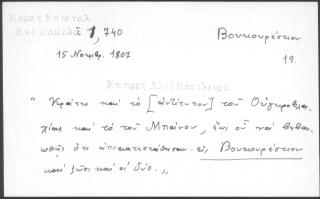 Κοραη Επιστολ
Εκδ Δαμαλᾶ 1,740
Βουκουρέστιον
15 Νοεμβρ. 1807
19.
"Κράτει καὶ τὸ [ἀντίτυπον] τοῦ Οὐγκροβλα-
χίας καὶ τὸ τοῦ Μπαίνου, ἕως οὗ νὰ βεβαι-
ωθῇς ὅτι ἀποκατεστάθησαν εἰς Βουκουρέστιον
καὶ ζῶσι καὶ οἱ δύο.,,